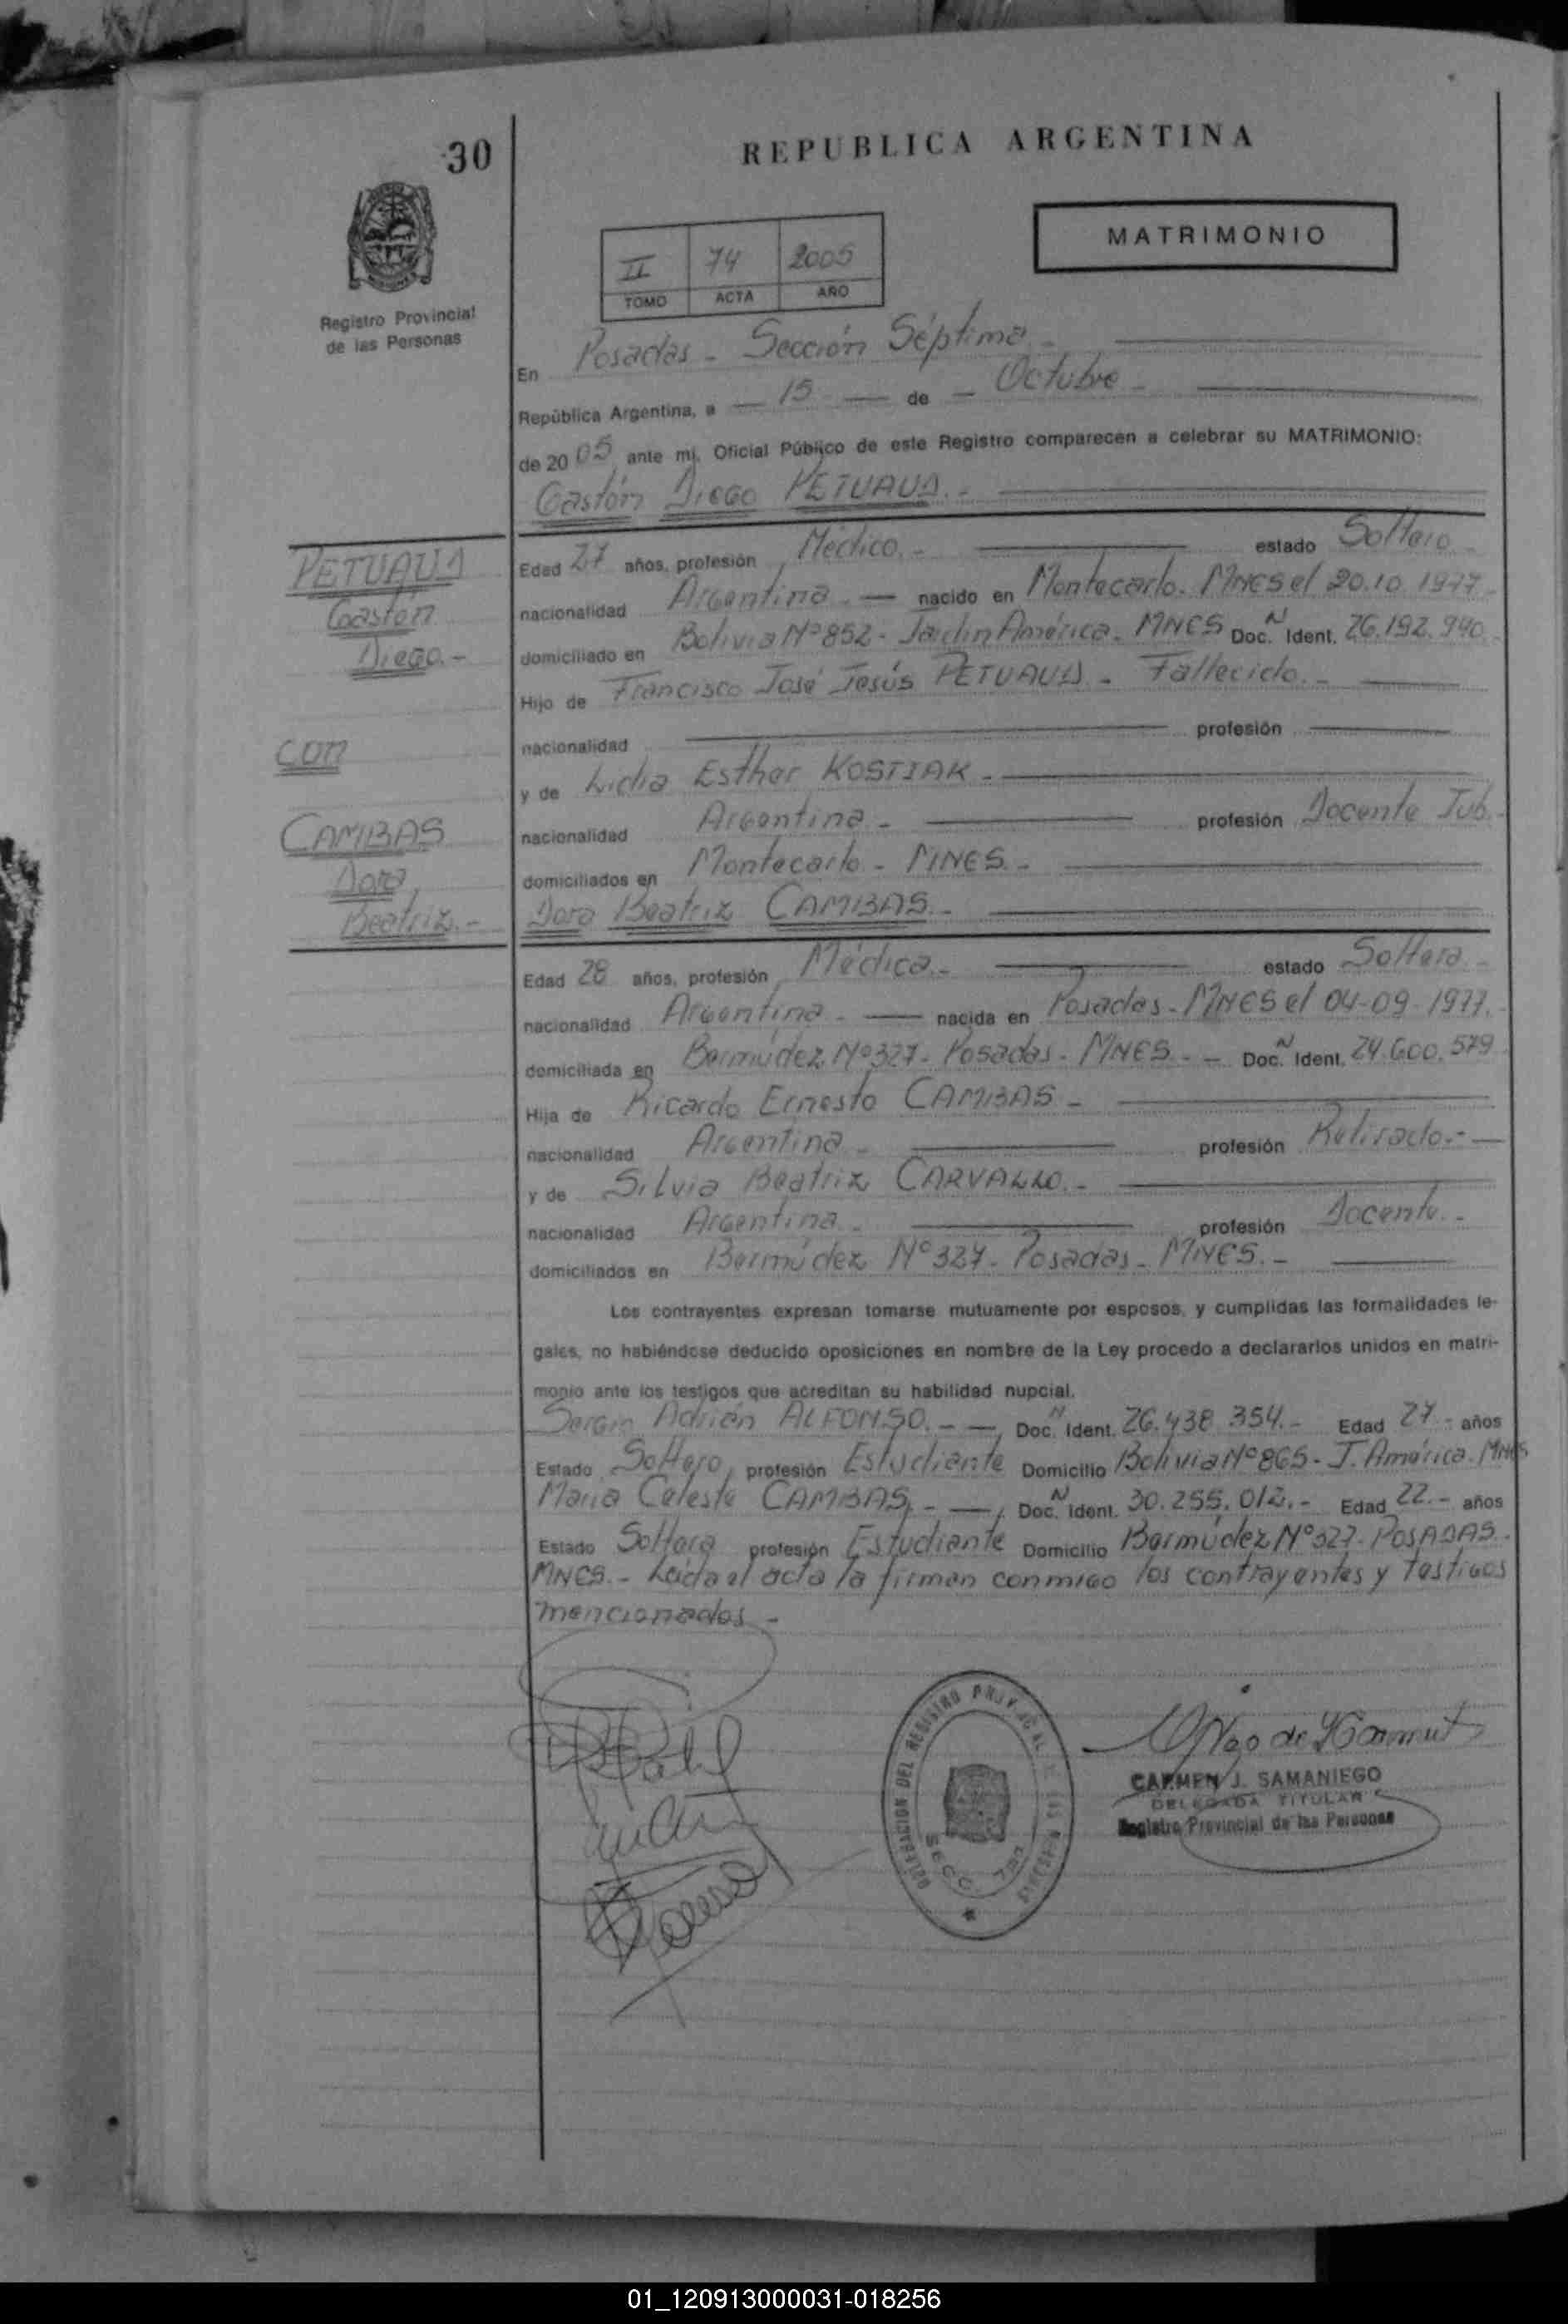 30
REPUBLICA ARGENTINA
MATRIMONIO
II 74 2005
TOMO ACTA AÑO
Registro Provincial
de las Personas
En Posadas - Sección Séptima.-
República Argentina, a - 15 - de - Octubre -
de 2005 ante mi, Oficial Público de este Registro comparecen a celebrar su MATRIMONIO:
Gastón Diego
Gastón
Diego.-
Edad 27 años, profesión Médico.- estado Soltero.-
nacionalidad Argentina.- nacido en Montecarlo. MNES el 20.10.1977.-
domiciliado en Bolivia Nº 852 - Jardín América. MNES Doc. N Ident. 26.192.940.-
Hijo de Francisco José Jesús - Fallecido.-
nacionalidad profesión
y de Lidia Esther KOSTIAK.-
nacionalidad Argentina.- profesión Docente Jub.-
domiciliados en Montecarlo - MNES.-
con
CAMBAS
Dora
Beatriz.-
Dora Beatriz CAMBAS.-
Edad 28 años, profesión Médica.- estado Soltera.-
nacionalidad Argentina.- nacida en Posadas - MNES el 04-09-1977.
domiciliada en Bermúdez Nº 327 - Posadas - MNES.- Doc. N Ident. 24.600.579
Hija de Ricardo Ernesto CAMBAS -
nacionalidad Argentina.- profesión Retirado.-
y de Silvia Beatriz CARVALLO.-
nacionalidad Argentina.- profesión Docente.-
domiciliados en Bermúdez Nº 327 - Posadas - MNES.-
Los contrayentes expresan tomarse mutuamente por esposos, y cumplidas las formalidades le-
gales, no habiéndose deducido oposiciones en nombre de la Ley procedo a declararlos unidos en matri-
monio ante los testigos que acreditan su habilidad nupcial.
Sergio Adrián ALFONSO.- Doc. N Ident. 26.438.354.- Edad 27.- años
Estado Soltero, profesión Estudiante Domicilio Bolivia Nº 865 - J. América. MNES
María Celeste CAMBAS.- Doc. N Ident. 30.255.012.- Edad 22.- años
Estado Soltera profesión Estudiante Domicilio Bermúdez Nº 327 - POSADAS.
MNES.- Leída el acta la firman conmigo los contrayentes y testigos
mencionados.-
DELEGACION DEL REGISTRO PROVINCIAL DE LAS PERSONAS
SECC. 7ma
CARMEN J. SAMANIEGO
DELEGADA TITULAR
Registro Provincial de las Personas
01_120913000031-018256